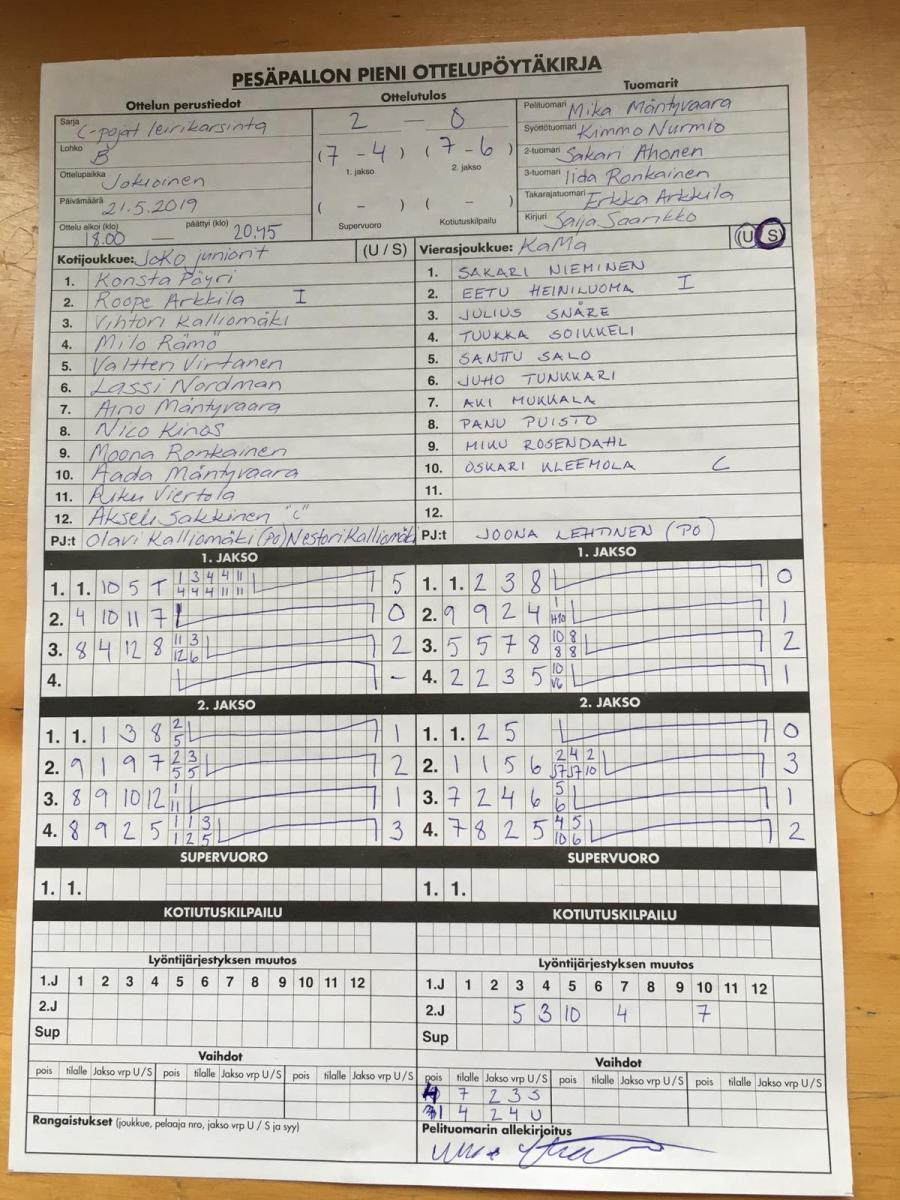 PESÄPALLON PIENI OTTELUPÖYTÄKIRJA
Ottelun perustiedot
Sarja C-pojat leirikarsinta
Lohko B
Ottelupaikka Jokioinen
Päivämäärä 21.5.2019
Ottelu alkoi (klo) päättyi (klo)
18.00 — 20.45
Ottelutulos
2 - 0
(7 - 4) (7 - 6)
1. jakso 2. jakso
( - ) ( - )
Supervuoro Kotiutuskilpailu
Tuomarit
Pelituomari Mika Mäntyvaara
Syöttötuomari Kimmo Nurmio
2-tuomari Sakari Ahonen
3-tuomari Iida Ronkainen
Takarajatuomari Erkka Arkkila
Kirjuri Saija Saarikko
Kotijoukkue: JoKo juniorit (U / S)
1. Konsta Pöyri
2. Roope Arkkila I
3. Vihtori Kalliomäki
4. Milo Rämö
5. Valtteri Virtanen
6. Lassi Nordman
7. Aino Mäntyvaara
8. Nico Kinos
9. Moona Ronkainen
10. Aada Mäntyvaara
11. Riku Viertola
12. Akseli Sakkinen "C"
PJ:t Olavi Kalliomäki (PO) Nestori Kalliomäki
Vierasjoukkue: KaMa (U S)
1. SAKARI NIEMINEN
2. EETU HEINILUOMA I
3. JULIUS SNÅRE
4. TUUKKA SOIKKELI
5. SANTTU SALO
6. JUHO TUNKKARI
7. AKI MUKKALA
8. PANU PUISTO
9. MIKU ROSENDAHL
10. OSKARI KLEEMOLA C
11.
12.
PJ:t JOONA LEHTINEN (PO)
1. JAKSO
1. 1. 10 5 T 1 3 4 4 11 5
4 4 4 11 11
2. 4 10 11 7 0
3. 8 4 12 8 11 3 2
12 6
4. -
1. JAKSO
1. 1. 2 3 8 0
2. 9 9 2 4 1 1
H10
3. 5 5 7 8 10 8 2
8 8
4. 2 2 3 5 10 1
V6
2. JAKSO
1. 1. 1 3 8 2 1
5
2. 9 1 9 7 2 3 2
5 5
3. 8 9 10 12 1 1
11
4. 8 9 2 5 1 1 3 3
1 2 5
2. JAKSO
1. 1. 2 5 0
2. 1 1 5 6 2 4 2 3
J7 J7 10
3. 7 2 4 6 5 1
6
4. 7 8 2 5 4 5 2
10 6
SUPERVUORO
1. 1.
SUPERVUORO
1. 1.
KOTIUTUSKILPAILU
KOTIUTUSKILPAILU
Lyöntijärjestyksen muutos
1.J 1 2 3 4 5 6 7 8 9 10 11 12
2.J
Sup
Lyöntijärjestyksen muutos
1.J 1 2 3 4 5 6 7 8 9 10 11 12
2.J 5 3 10 4 7
Sup
Vaihdot
pois tilalle Jakso vrp U / S pois tilalle Jakso vrp U / S pois tilalle Jakso vrp U / S
Rangaistukset (joukkue, pelaaja nro, jakso vrp U / S ja syy)
Vaihdot
pois tilalle Jakso vrp U / S pois tilalle Jakso vrp U / S pois tilalle Jakso vrp U / S
7 2 3 S
4 2 4 U
Pelituomarin allekirjoitus